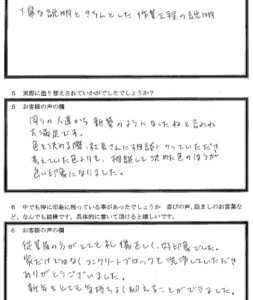 丁寧な説明ときちんとした作業工程の説明
5 実際に塗り替えされていかがでしたでしょうか?
5 お客様の声の欄
周りの人達から新築のようになったねと言われ
大満足です。
色を決める際、社長さんに相談にのっていただき
考えていた色よりも、相談して決めた色のほうが
良い印象になりました。
6 中でも特に印象に残っている事があったでしょうか 喜びの声、励ましのお言葉な
ど、なんでも結構です。具体的に書いて頂けると嬉しいです。
6 お客様の声の欄
従業員の方がとても礼儀正しく、好印象でした。
家だけではなくコンクリートブロックも洗浄していただき
ありがとうございました。
新年もとても気持ちよく迎えることができました。